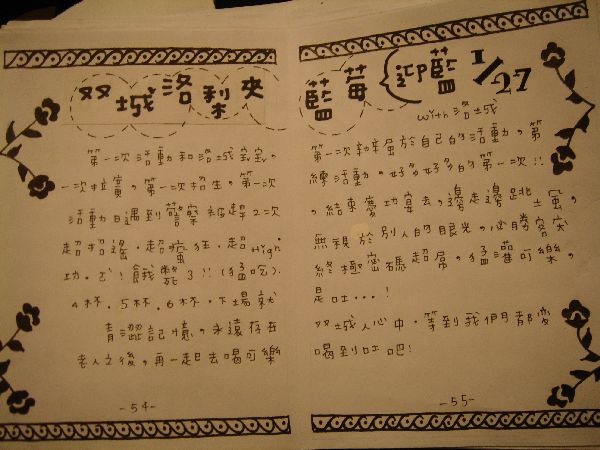 双城洛梨夾
第一次活動和洛城寂寂。
一次拉賓。第一次招生。第一次
活動日遇到警察被趕2次
超招遙.超瘋狂.超High
功.ㄟ!餓斃了!!(猛吃).
4杯.5杯.6杯.下場就
青澀記憶。永遠存在
老人之後。再一起去喝可樂
-54-
藍莓{迎藍 1/27
with 洛城
第一次辦屬於自己的活動。第
練活動。好多好多的第一次!!
。結束慶功宴去。邊走邊跳土風。
無視於別人的眼光。必勝客突
終極密碼超屌。猛灌可樂。
是吐...!
双城人心中.等到我們都變
喝到吐吧!
-55-